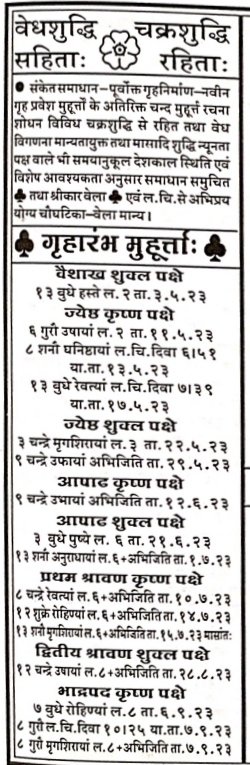 वेधशुद्धि चक्रशुद्धि
सहिताः रहिताः
● संकेत समाधान–पूर्वोक्त गृहनिर्माण–नवीन
गृह प्रवेश मुहूर्त्तों के अतिरिक्त चन्द मुहूर्त्त रचना
शोधन विविध चक्रशुद्धि से रहित तथा वेध
विगणना मान्यतायुक्त तथा मासादि शुद्धि न्यूनता
पक्ष वाले भी समयानुकूल देशकाल स्थिति एवं
विशेष आवश्यकता अनुसार समाधान समुचित
♣ तथा श्रीकार वेला ♣ एवं ल.चि.से अभिप्राय
योग्य चौघटिका–वेला मान्य।
♣ गृहारंभ मुहूर्त्ताः ♣
वैशाख शुक्ल पक्षे
१३ वुधे हस्ते ल.२ ता.३.५.२३
ज्येष्ठ कृष्ण पक्षे
६ गुरौ उषायां ल.२ ता.११.५.२३
८ शनौ घनिष्ठायां ल.चि.दिवा ६।५१
या.ता.१३.५.२३
१३ वुधे रेवत्यां ल.चि.दिवा ७।३९
या.ता.१७.५.२३
ज्येष्ठ शुक्ल पक्षे
३ चन्द्रे मृगशिरायां ल.३ ता.२२.५.२३
९ चन्द्रे उफायां अभिजिति ता.२९.५.२३
आषाढ कृष्ण पक्षे
९ चन्द्रे उभायां अभिजिति ता.१२.६.२३
आषाढ शुक्ल पक्षे
३ वुधे पुष्ये ल.६ ता.२१.६.२३
१३ शनौ अनुराधायां ल.६+अभिजिति ता.१.७.२३
प्रथम श्रावण कृष्ण पक्षे
८ चन्द्रे रेवत्यां ल.६+अभिजिति ता.१०.७.२३
१२ शुक्रे रोहिण्यां ल.६+अभिजिति ता.१४.७.२३
१३ शनौ मृगशिरायां ल.६+अभिजिति ता.१५.७.२३ मासांतः
द्वितीय श्रावण शुक्ल पक्षे
१२ चन्द्रे उषायां ल.८+अभिजिति ता.२८.८.२३
भाद्रपद कृष्ण पक्षे
७ वुधे रोहिण्यां ल.८ ता.६.९.२३
८ गुरौ ल.चि.दिवा १०।२५ या.ता.७.९.२३
८ गुरौ मृगशिरायां ल.८+अभिजिति ता.७.९.२३